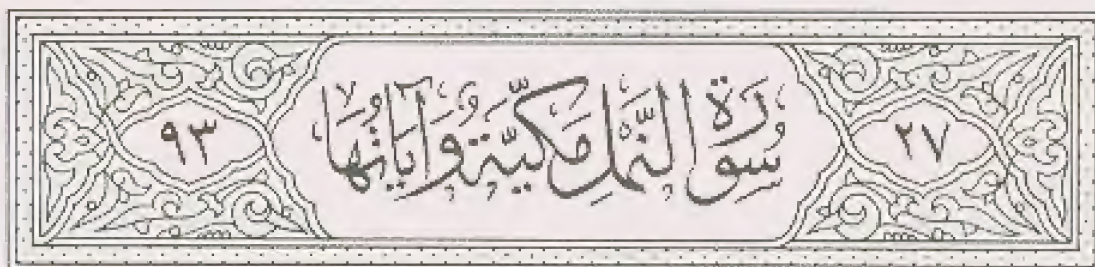 ٢٧ سُورَةُ النَّمْلِ مَكِّيَّةٌ وَآيَاتُهَا ٩٣